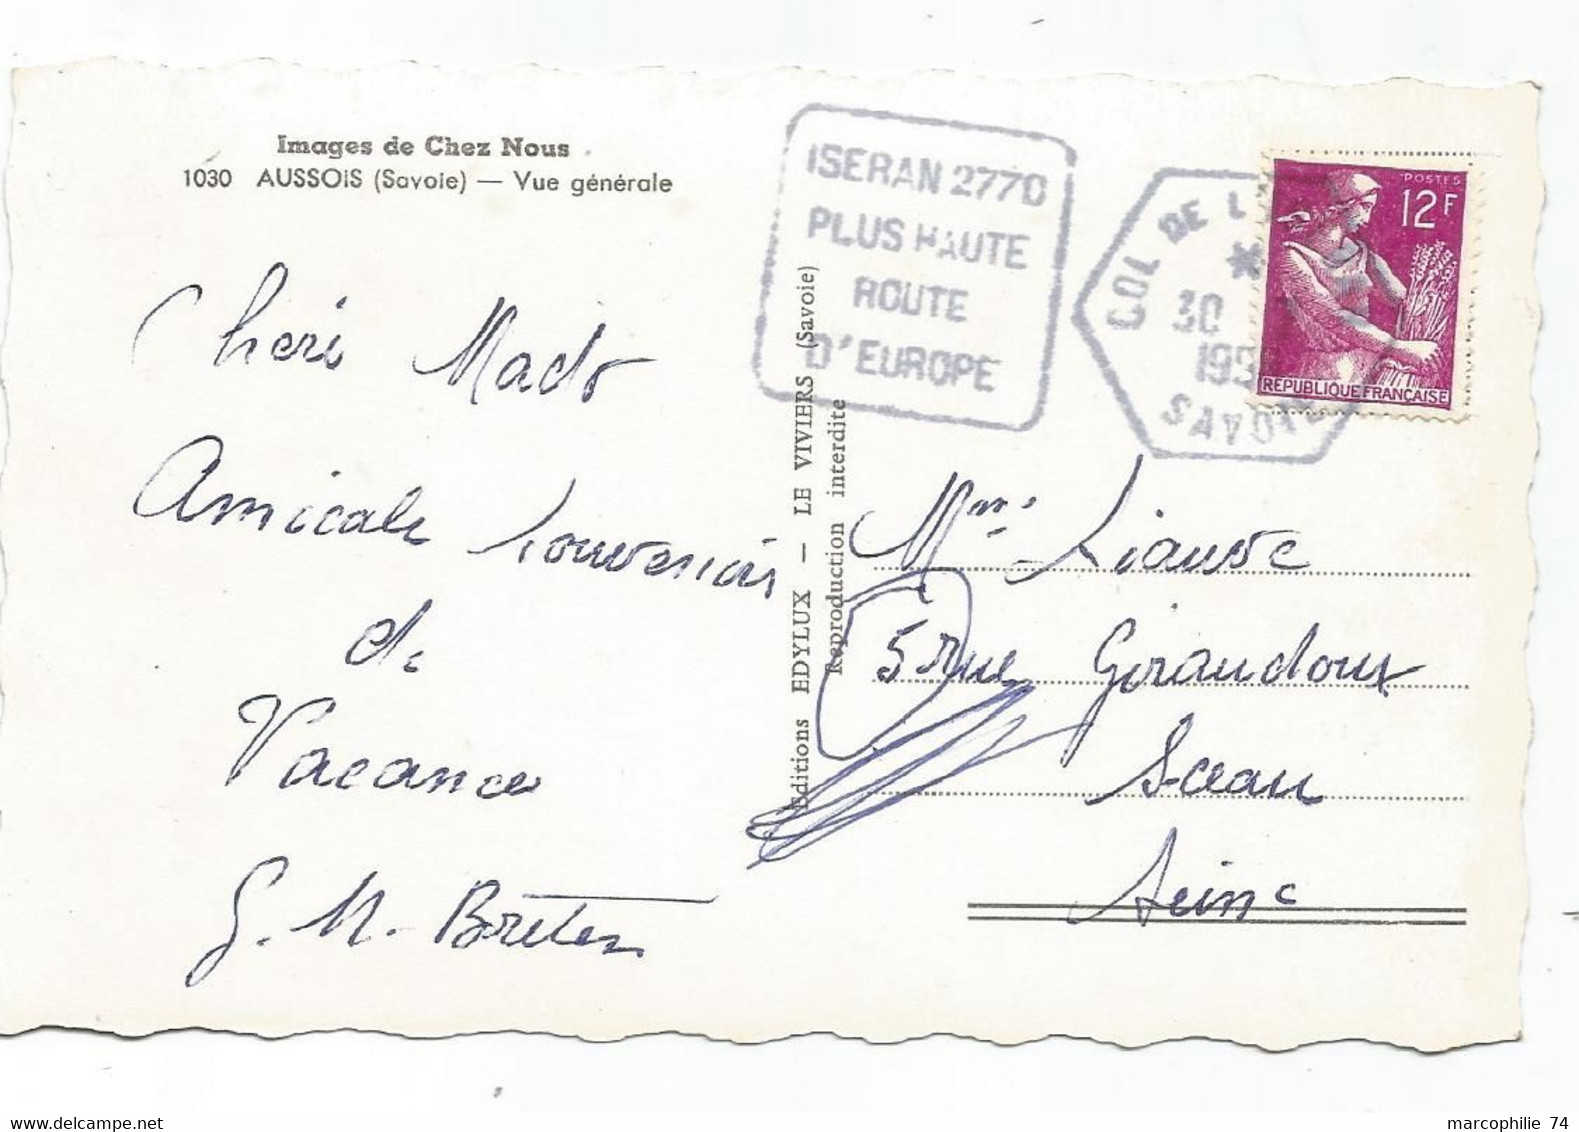 Images de Chez Nous
1030 AUSSOIS (Savoie) — Vue générale
Cheri Mado
Amicale Souvenir
de
Vacance
G. M. Breton
Editions EDYLUX — LE VIVIERS (Savoie)
Reproduction interdite
ISERAN 2770
PLUS HAUTE
ROUTE
D'EUROPE
COL DE L
30
SAVOIE
POSTES
12F
REPUBLIQUE FRANÇAISE
Mme
5 rue Giraudoux
Sceau
Seine
marcophilie 74